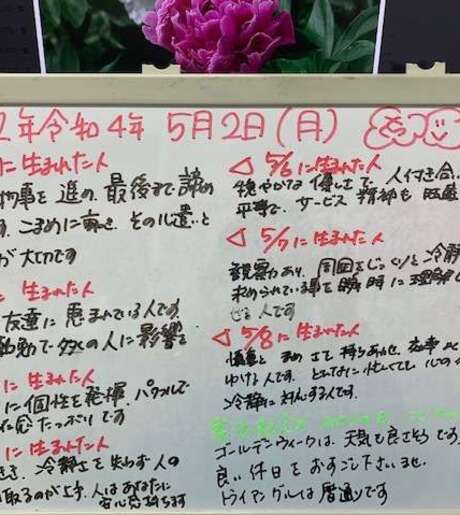 2年令和4年 5月2日(月)
に生まれた人
物事を進め、最後まで諦め
こまめに動き、その心遣いと
が大切です
に生まれた人
友達に恵まれている人です。
動で多くの人に影響を
に生まれた人
に個性を発揮、パワフルで
たっぷりです
に生まれた人
冷静さを失わず人の
取るのが上手、人はあなたに
安心感持ちます
◁ 5/6に生まれた人
穏やかな優しさで、人付き合
平等で、サービス精神も旺盛
◁ 5/7に生まれた人
観察力あり、周囲をじっくりと冷静
求められている事を瞬時に理解
じる人です
◁ 5/8に生まれた人
まめさを持ちあわせ、
ゆける人です。どんなに忙しくても心の
冷静に対処する人です。
ゴールデンウィークは、天気も良さそうです
良い休日をおすごし下さいませ。
トライアングルは暦通りです